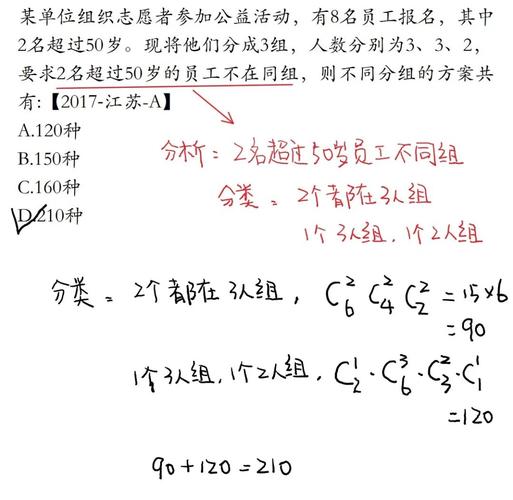 某单位组织志愿者参加公益活动，有8名员工报名，其中
2名超过50岁。现将他们分成3组，人数分别为3、3、2，
要求2名超过50岁的员工不在同组，则不同分组的方案共
有:【2017-江苏-A】
A.120种
B.150种
C.160种
D.210种
分析：2名超过50岁员工不同组
分类：2个都在3人组
1个3人组，1个2人组
分类：2个都在3人组，C₆² C₄² C₂² = 15×6
= 90
1个3人组，1个2人组，C₂¹·C₆³·C₃²·C₁¹
= 120
90+120=210